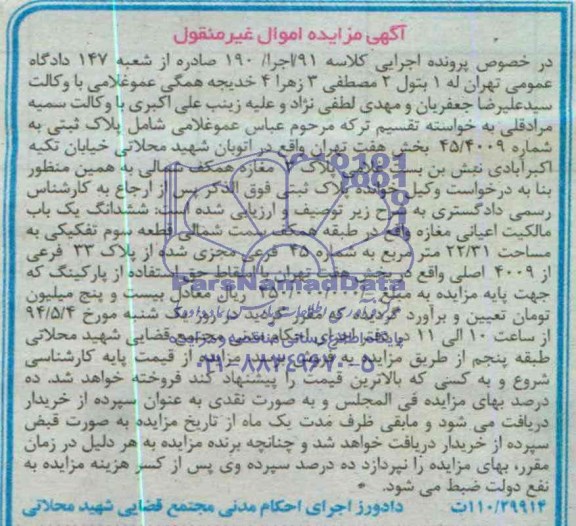 آگهی مزایده اموال غیرمنقول
در خصوص پرونده اجرایی کلاسه ۹۱/اجرا/ ۱۹۰ صادره از شعبه ۱۴۷ دادگاه
عمومی تهران له ۱ بتول ۲ مصطفی ۳ زهرا ۴ خدیجه همگی عموغلامی با وکالت
سیدعلیرضا جعفریان و مهدی لطفی نژاد و علیه زینب علی اکبری با وکالت سمیه
مرادقلی به خواسته تقسیم ترکه مرحوم عباس عموغلامی شامل پلاک ثبتی به
شماره ۴۵/۴۰۰۹ بخش هفت تهران واقع در اتوبان شهید محلاتی خیابان تکیه
اکبرآبادی نبش بن بست پلاک مغازه همکف شمالی به همین منظور
بنا به درخواست وکیل خوانده پلاک ثبتی فوق الذکر پس از ارجاع به کارشناس
رسمی دادگستری به شرح زیر توصیف و ارزیابی شده است: ششدانگ یک باب
مالکیت اعیانی مغازه واقع در طبقه همکف سمت شمالی قطعه سوم تفکیکی به
مساحت ۲۲/۳۱ متر مربع به شماره ۴۵ فرعی مجزی شده از پلاک ۳۳ فرعی
از ۴۰۰۹ اصلی واقع در بخش هفت تهران با اسقاط حق استفاده از پارکینگ که
جهت پایه مزایده به مبلغ ریال معادل بیست و پنج میلیون
تومان تعیین و برآورد گردیده که مقرر گردید در روز یک شنبه مورخ ۹۴/۵/۴
از ساعت ۱۰ الی ۱۱ در دفتر اجرای احکام مدنی مجتمع قضایی شهید محلاتی
طبقه پنجم از طریق مزایده به فروش برسد مزایده از قیمت پایه کارشناسی
شروع و به کسی که بالاترین قیمت را پیشنهاد کند فروخته خواهد شد. ده
درصد بهای مزایده فی المجلس و به صورت نقدی به عنوان سپرده از خریدار
دریافت می شود و مابقی ظرف مدت یک ماه از تاریخ مزایده به صورت قبض
سپرده از خریدار دریافت خواهد شد و چنانچه برنده مزایده به هر دلیل در زمان
مقرر، بهای مزایده را نپردازد ده درصد سپرده وی پس از کسر هزینه مزایده به
نفع دولت ضبط می شود.
۱۱۰/۲۹۹۱۴ت دادورز اجرای احکام مدنی مجتمع قضایی شهید محلاتی
ParsNamadData
۰۲۱-۸۸۳۴۹۶۷۰-۵